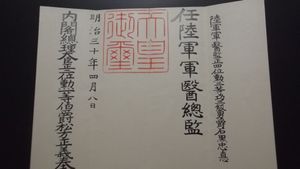 陸軍軍醫監正四位勳二等功三級男爵石黑忠悳
任陸軍軍醫總監
天皇御璽
明治三十年四月八日
内閣總理大臣正二位勳一等伯爵松方正義奉